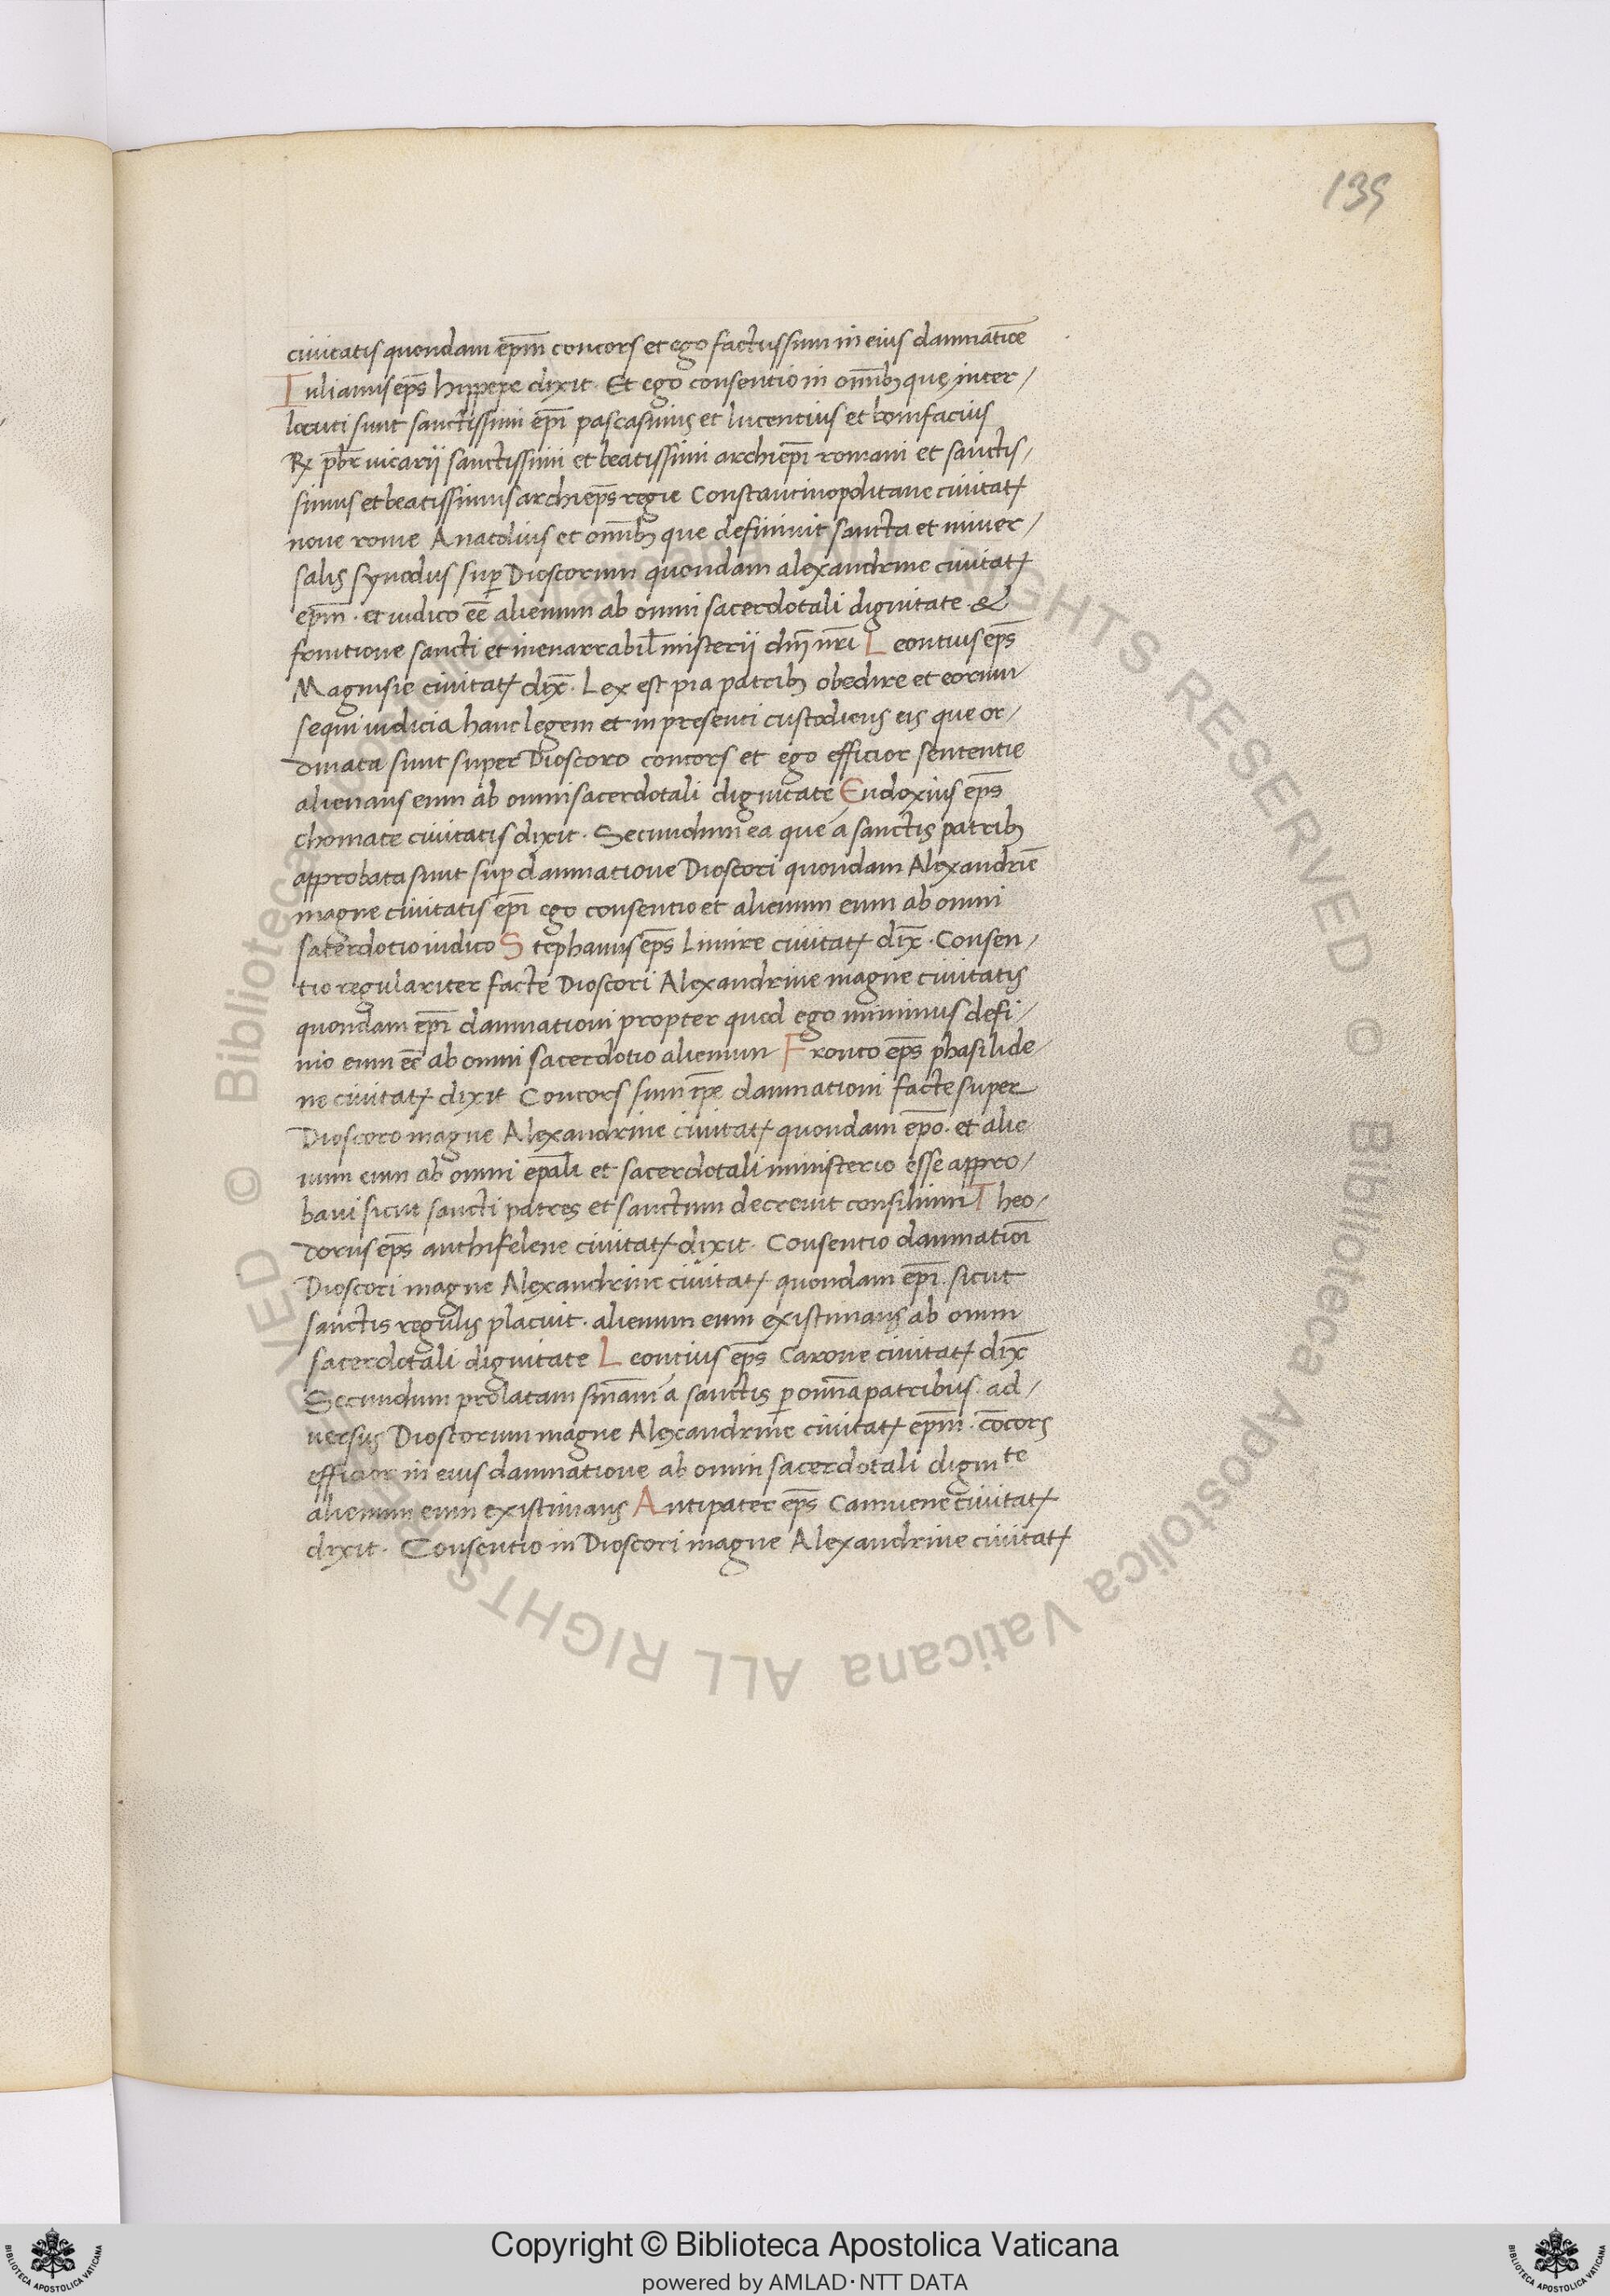 139
ciuitatis quondam ep̄m concors et ego factus sum in eius damnatiōe
Iulianus ep̄s hippepe dixit. Et ego consentio in om̄ib; que inter/
locuti sunt sanctissimi ep̄i pascasinus et lucentius et bonifacius
pb̄r uicarii sanctissimi et beatissimi archiep̄i romani et sanctis/
simus et beatissimus archiep̄s regie Constantinopolitane ciuitat̃
noue rome Anatolius et om̄ib; que definiuit sancta et niuer/
salis synodus sup̱ Dioscorum quondam alexandrine ciuitat̃
ep̄m. et iudico eē alienum ab omni sacerdotali dignitate. &
fruitione sancti et inenarrabil̄ misterii dn̄i nr̄i Leontius ep̄s
Magnisie ciuitat̃ dix̄. Lex est pia patrib; obedire et eorum
sequi iudicia hanc legem et in presenti custodiens eis que or/
dinata sunt super Dioscoro concors et ego efficior sententie
alienans eum ab omni sacerdotali dignitate Eudoxius ep̄s
chomate ciuitatis dixit. Secundum ea que a sanctis patrib;
approbata sunt sup̱ damnatione Dioscori quondam Alexandriē
magne ciuitatis ep̄i ego consentio et alienum eum ab omni
sacerdotio iudico Stephanus ep̄s Limire ciuitat̃ dix̄. Consen/
tio regulariter facte Dioscori Alexandrine magne ciuitatis
quondam ep̄i damnationi propter quod ego minimus defi/
nio eum eē ab omni sacerdotio alienum Fronto ep̄s phasilide/
ne ciuitat̃ dixit Concors sum damnationi facte super
Dioscoro magne Alexandrine ciuitat̃ quondam ep̄o. et alie
num eum ab omni ep̄ali et sacerdotali ministerio esse appro/
baui sicut sancti patres et sanctum decreuit consilium Theo/
dorus ep̄s anthifelene ciuitat̃ dixit. Consentio damnatioī
Dioscori magne Alexandrine ciuitat̃ quondam ep̄i. sicut
sanctis regulis placuit. alienum eum existimans ab omni
sacerdotali dignitate Leontius ep̄s Carone ciuitat̃ dix̄
Secundum prolatam sn̄iam a sanctis p̱ omnīa patribus. ad/
uersus Dioscorum magne Alexandrine ciuitat̃ ep̄m. cōcors
efficior in eius damnatione ab omni sacerdotali dignite
alienum eum existimans Antipater ep̄s Camuene ciuitat̃
dixit. Consentio in Dioscori magne Alexandrine ciuitat̃
© Biblioteca Apostolica Vaticana ALL RIGHTS RESERVED © Biblioteca Apostolica Vaticana ALL RIGHTS RESERVED
Copyright © Biblioteca Apostolica Vaticana
powered by AMLAD·NTT DATA
BIBLIOTECA APOSTOLICA VATICANA
BIBLIOTECA APOSTOLICA VATICANA